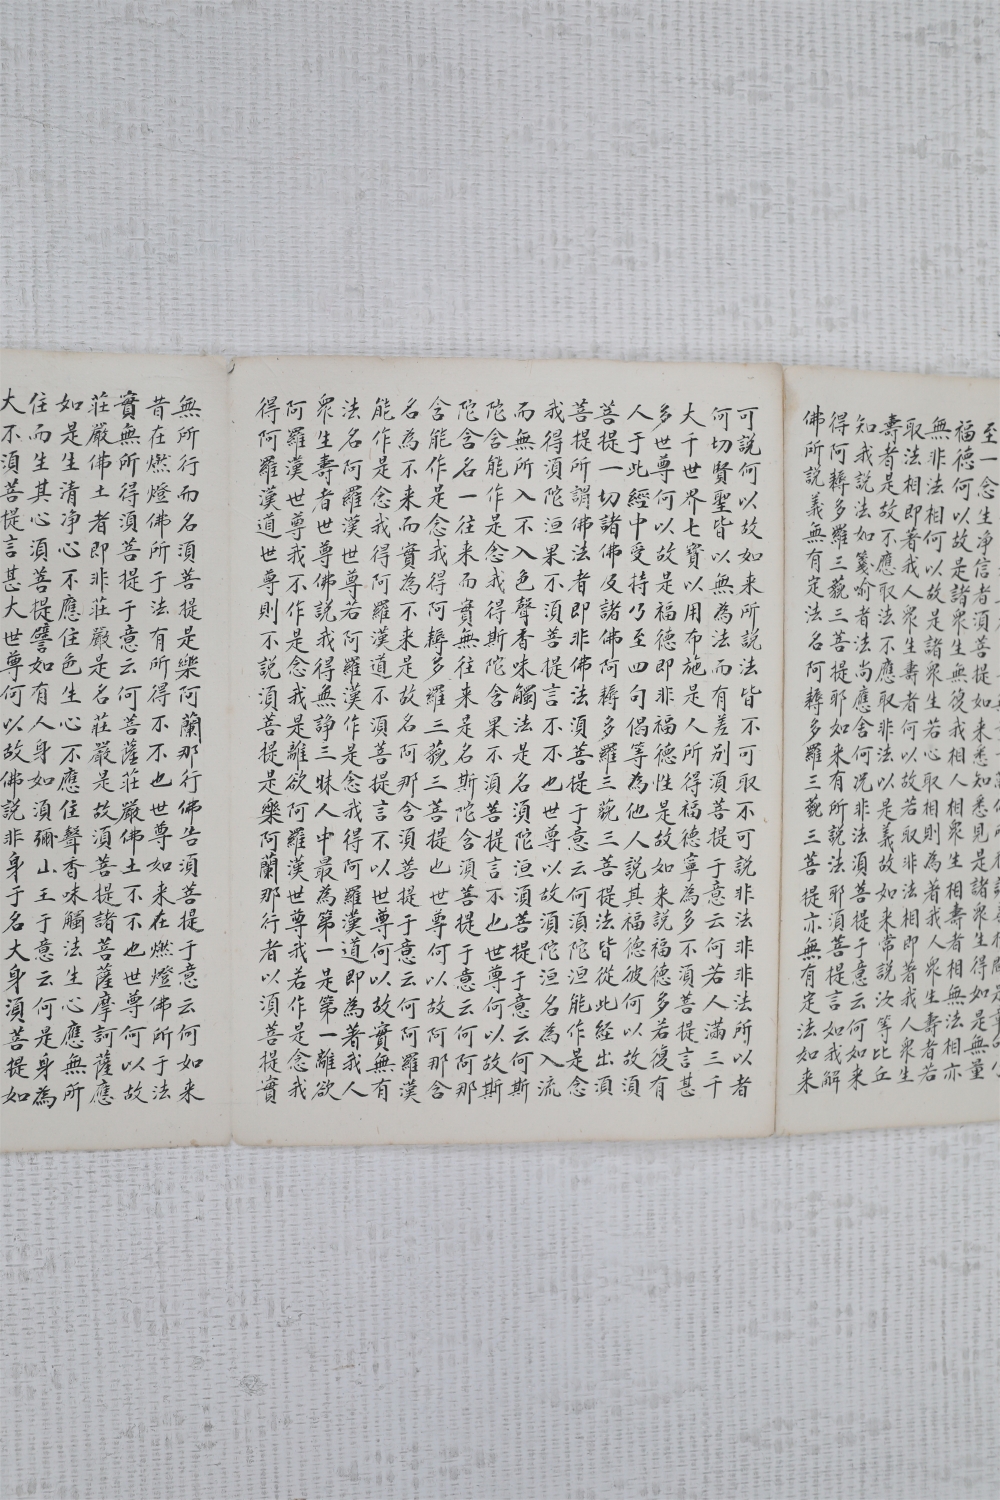 至一念生净信者須菩提如来悉知悉見是諸衆生得如是無量
福德何以故是諸衆生無復我相人相衆生相壽者相無法相亦
無非法相何以故是諸衆生若心取相則為著我人衆生壽者若
取法相即著我人衆生壽者何以故若取非法相即著我人衆生
壽者是故不應取法不應取非法以是義故如来常説汝等比丘
知我説法如筏喻者法尚應舍何况非法須菩提于意云何如来
得阿耨多羅三藐三菩提耶如来有所説法耶須菩提言如我解
佛所説義無有定法名阿耨多羅三藐三菩提亦無有定法如来
可説何以故如来所説法皆不可取不可説非法非非法所以者
何切賢聖皆以無為法而有差别須菩提于意云何若人滿三千
大千世界七寶以用布施是人所得福德寧為多不須菩提言甚
多世尊何以故是福德即非福德性是故如来説福德多若復有
人于此經中受持乃至四句偈等為他人説其福德彼何以故須
菩提一切諸佛及諸佛阿耨多羅三藐三菩提法皆從此経出須
菩提所謂佛法者即非佛法須菩提于意云何須陀洹能作是念
我得須陀洹果不須菩提言不不也世尊以故須陀洹名為入流
而無所入不入色聲香味觸法是名須陀洹須菩提于意云何斯
陀含能作是念我得斯陀含果不須菩提言不也世尊何以故斯
陀含名一往来而實無往来是名斯陀含須菩提于意云何阿那
含能作是念我得阿耨多羅三藐三菩提也世尊何以故阿那含
名為不来而實為不来是故名阿那含須菩提于意云何阿羅漢
能作是念我得阿羅漢道不須菩提言不以世尊何以故實無有
法名阿羅漢世尊若阿羅漢作是念我得阿羅漢道即為著我人
衆生壽者世尊佛説我得無諍三昧人中最為第一是第一離欲
阿羅漢世尊我不作是念我是離欲阿羅漢世尊我若作是念我
得阿羅漢道世尊則不説須菩提是樂阿蘭那行者以須菩提實
無所行而名須菩提是樂阿蘭那行佛告須菩提于意云何如来
昔在燃燈佛所于法有所得不不也世尊如来在燃燈佛所于法
實無所得須菩提于意云何菩薩莊嚴佛土不不也世尊何以故
莊嚴佛土者即非莊嚴是名莊嚴是故須菩提諸菩薩摩訶薩應
如是生清净心不應住色生心不應住聲香味觸法生心應無所
住而生其心須菩提譬如有人身如須彌山王于意云何是身為
大不須菩提言甚大世尊何以故佛説非身于名大身須菩提如